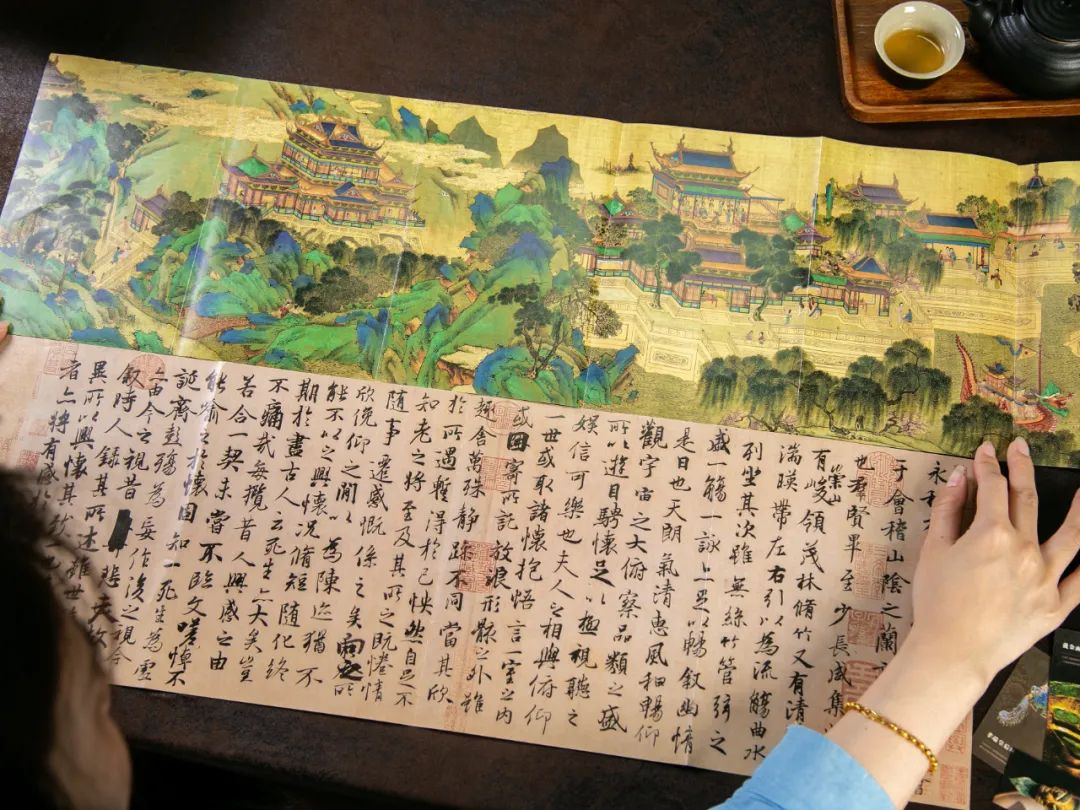 永和
于會稽山陰之蘭
也羣賢畢至少長咸集
有崇山峻領茂林脩竹又有清
湍暎帶左右引以為流觴曲水
列坐其次雖無絲竹管弦之
盛一觴一詠亦足以暢敘幽情
是日也天朗氣清惠風和暢仰
觀宇宙之大俯察品類之盛
所以遊目騁懷足以極視聽之
娛信可樂也夫人之相與俯仰
一世或取諸懷抱悟言一室之內
或因寄所託放浪形骸之外雖
趣舍萬殊靜躁不同當其欣
於所遇暫得於己怏然自足不
知老之將至及其所之既惓情
隨事遷感慨係之矣向之所
欣俛仰之閒以為陳迹猶不
能不以之興懷況脩短隨化終
期於盡古人云死生亦大矣豈
不痛哉每攬昔人興感之由
若合一契未嘗不臨文嗟悼不
能喻之於懷固知一死生為虛
誕齊彭殤為妄作後之視今
亦由今之視昔悲夫故
敘時人錄其所述雖世
異所以興懷其致一
者亦將有感於